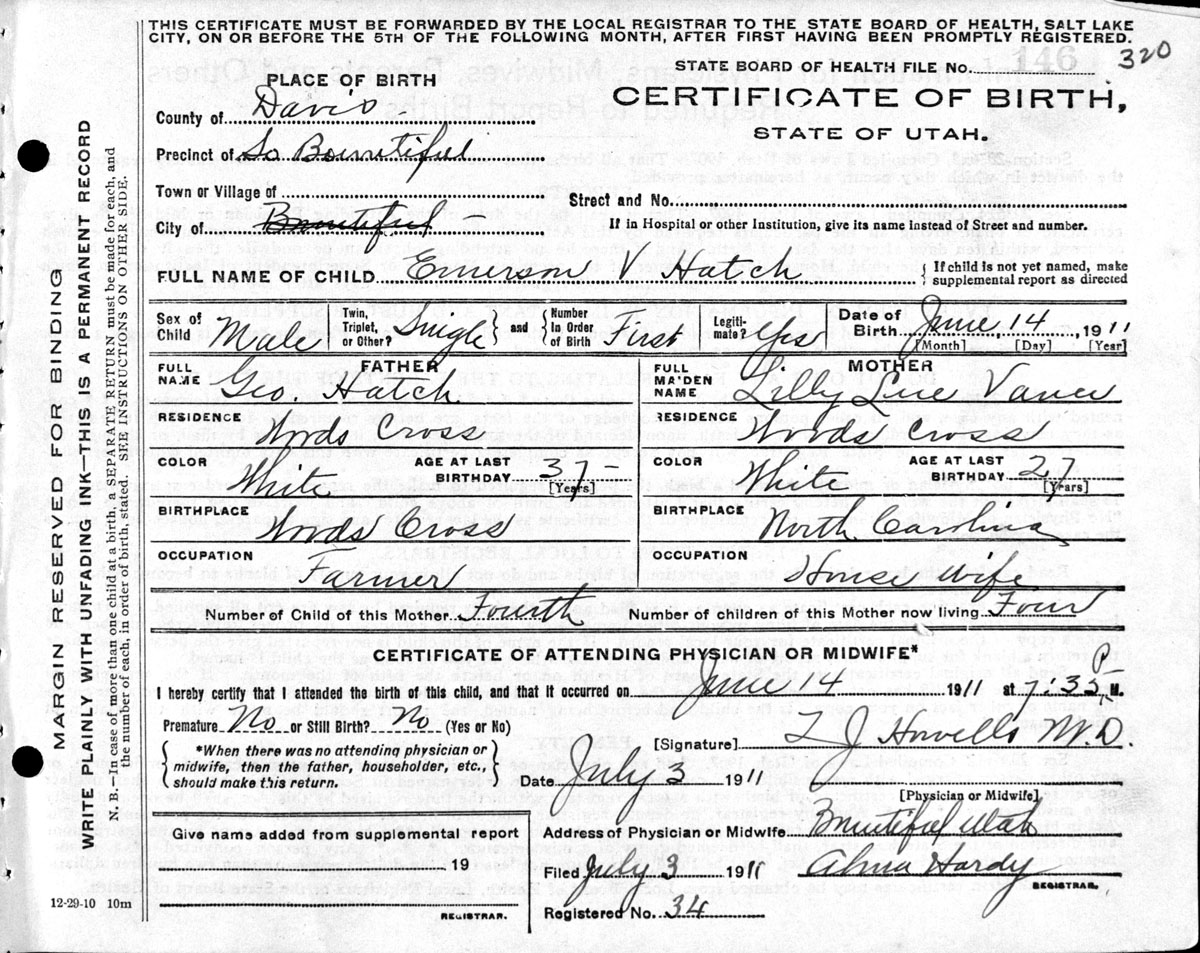 THIS CERTIFICATE MUST BE FORWARDED BY THE LOCAL REGISTRAR TO THE STATE BOARD OF HEALTH, SALT LAKE
CITY, ON OR BEFORE THE 5TH OF THE FOLLOWING MONTH, AFTER FIRST HAVING BEEN PROMPTLY REGISTERED.
320
STATE BOARD OF HEALTH FILE NO. 146
CERTIFICATE OF BIRTH,
STATE OF UTAH.
PLACE OF BIRTH
County of Davis
Precinct of So Bountiful
Town or Village of
Street and No.
City of Bountiful
If in Hospital or other Institution, give its name instead of Street and number.
FULL NAME OF CHILD Emerson V Hatch
If child is not yet named, make
supplemental report as directed
Sex of Child Male
Twin, Triplet, or Other? Single
and Number In Order of Birth First
Legiti- mate? Yes
Date of Birth June 14 1911
[Month] [Day] [Year]
FATHER
FULL NAME Geo. Hatch
MOTHER
FULL MA'DEN NAME Lilly Vance
RESIDENCE Woods Cross
RESIDENCE Woods Cross
COLOR White
AGE AT LAST BIRTHDAY 37
[Years]
COLOR White
AGE AT LAST BIRTHDAY 27
[Years]
BIRTHPLACE Woods Cross
BIRTHPLACE North Carolina
OCCUPATION Farmer
OCCUPATION House Wife
Number of Child of this Mother Fourth
Number of children of this Mother now living Four
CERTIFICATE OF ATTENDING PHYSICIAN OR MIDWIFE*
I hereby certify that I attended the birth of this child, and that it occurred on June 14 1911 at 7:35 P M.
Premature No or Still Birth? No (Yes or No)
*When there was no attending physician or
midwife, then the father, householder, etc.,
should make this return.
[Signature] L J Howells M.D.
Date July 3 1911
[Physician or Midwife]
Give name added from supplemental report
19
REGISTRAR.
Address of Physician or Midwife Bountiful Utah
Filed July 3 1911 Alma Hardy
REGISTRAR.
Registered No. 34
12-29-10 10m
MARGIN RESERVED FOR BINDING
WRITE PLAINLY WITH UNFADING INK—THIS IS A PERMANENT RECORD
N. B.—In case of more than one child at a birth, a SEPARATE RETURN must be made for each, and
the number of each, in order of birth, stated. SEE INSTRUCTIONS ON OTHER SIDE.